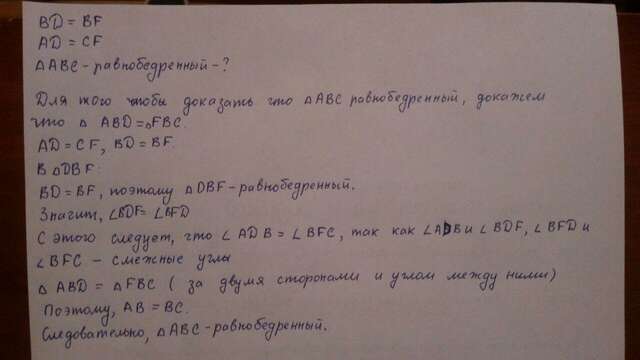 BD = BF
AD = CF
△ABC - равнобедренный - ?
Для того чтобы доказать что △ABC равнобедренный, докажем
что △ ABD = △FBC.
AD = CF, BD = BF.
В △DBF:
BD = BF, поэтому △DBF - равнобедренный.
Значит, ∠BDF = ∠BFD
С этого следует, что ∠ADB = ∠BFC, так как ∠ADB и ∠BDF, ∠BFD и
∠BFC - смежные углы
△ABD = △FBC (за двумя сторонами и углом между ними)
Поэтому, AB = BC.
Следовательно, △ABC - равнобедренный.